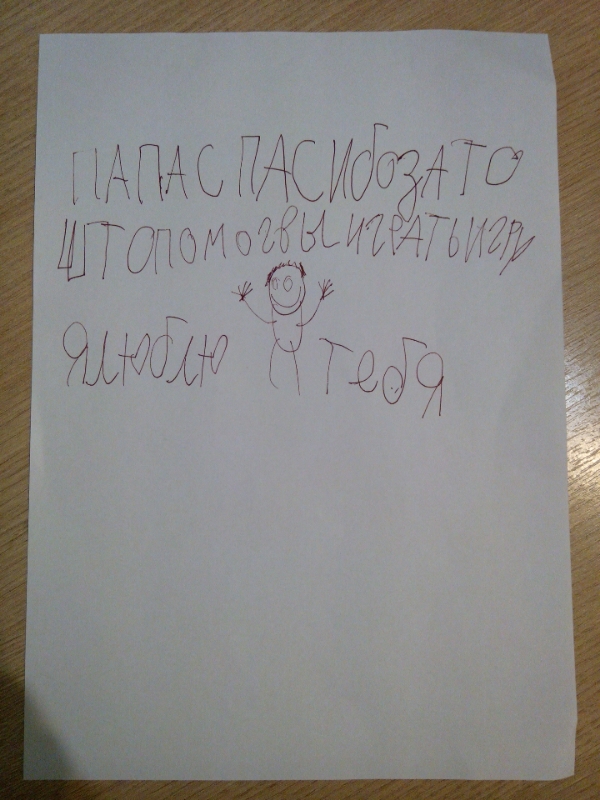 ПАПАСПАСИбОЗАТО
ШТОПОМОГВЫИГРАТЬИГРУ
ЯЛЮблЮ тебЯ